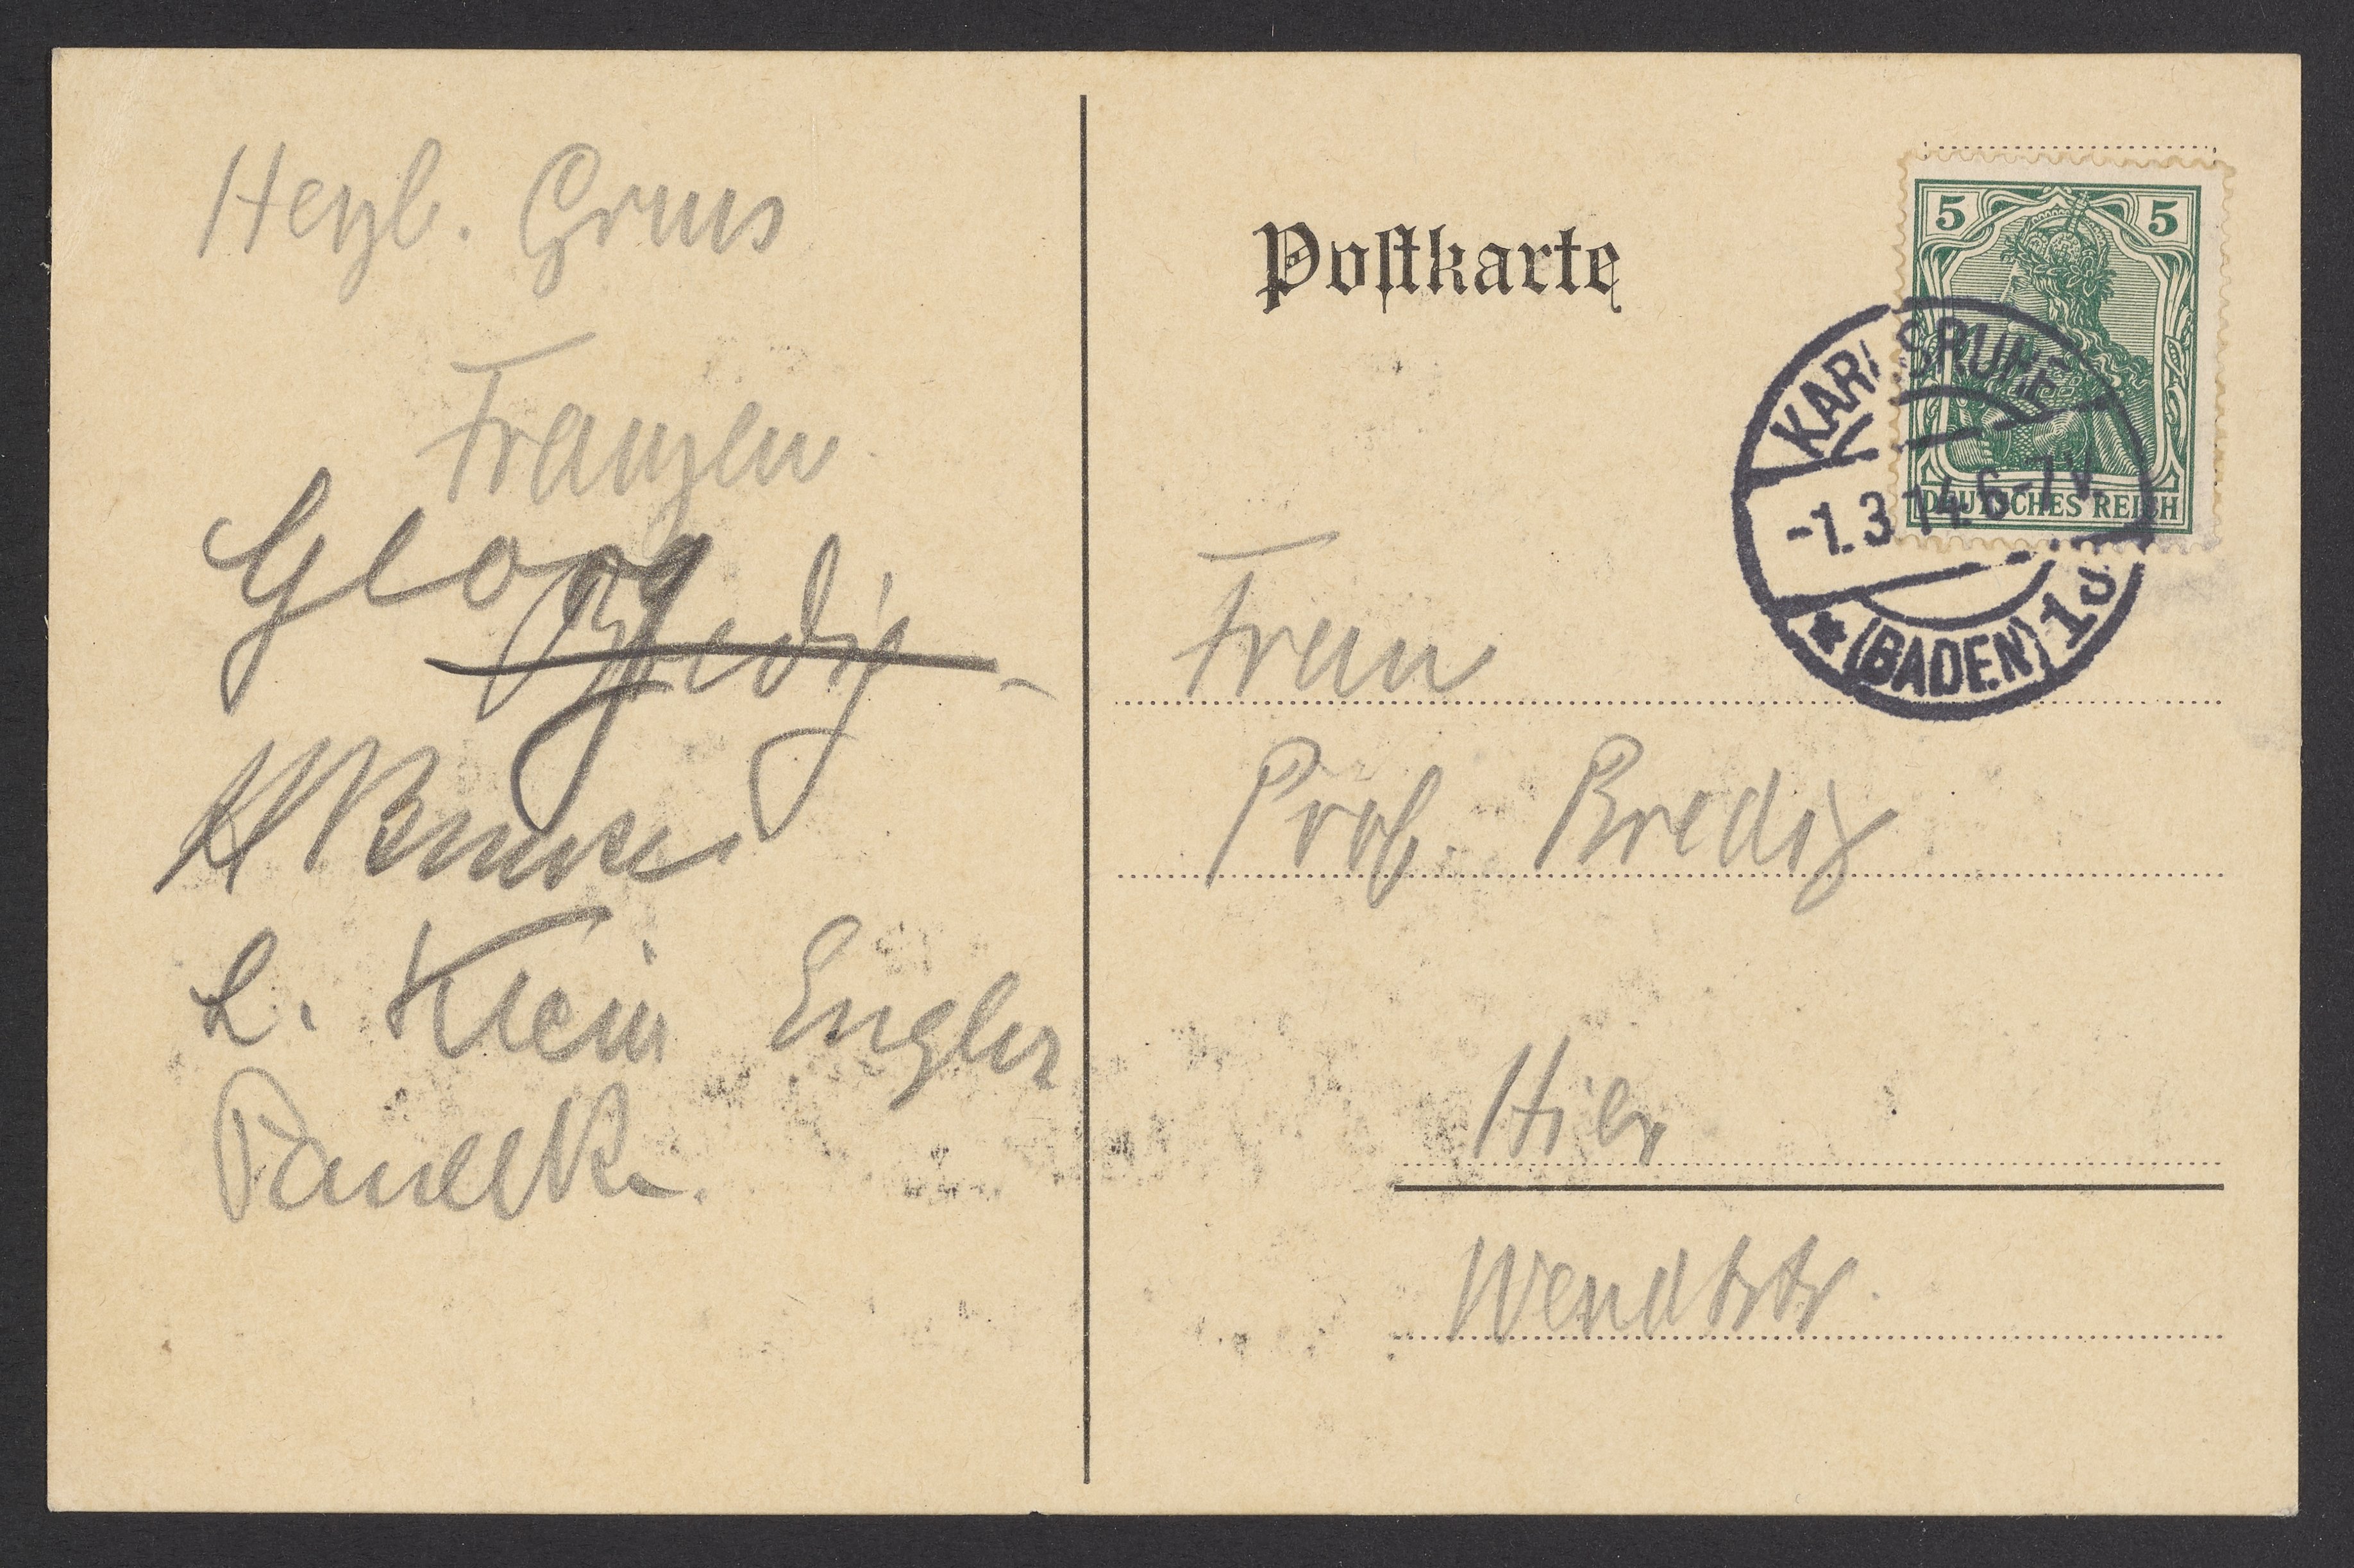 Herzl. Gruss
Franzen
Georg Bredig
L. Klein Engler
Postkarte
5 5
DEUTSCHES REICH
KARLSRUHE
-1.3.14.6-7V
* (BADEN) 1
Frau
Prof. Bredig
Hier
Wendtstr.